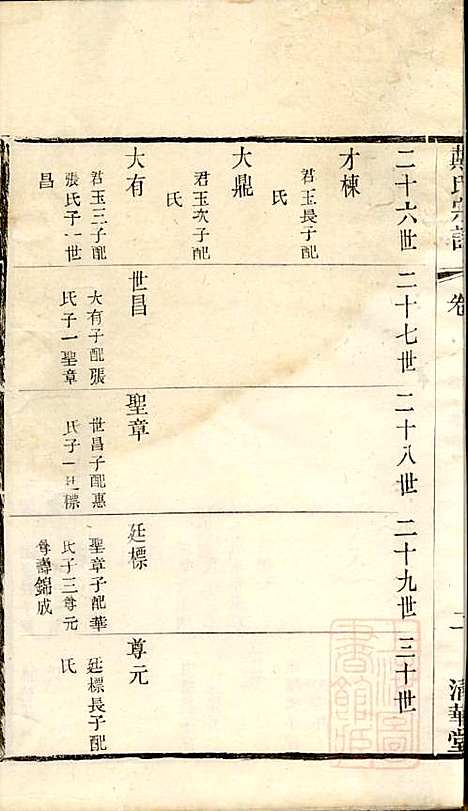 戴氏宗譜
卷
二
清華堂
二十六世
二十七世
二十八世
二十九世
三十世
才棟
君玉長子配
氏
大鼎
君玉次子配
氏
大有
君玉三子配
張氏子一世
昌
世昌
大有子配張
氏子一聖章
聖章
世昌子配惠
氏子一廷標
廷標
聖章子配華
氏子三尊元
尊壽錦成
尊元
廷標長子配
氏